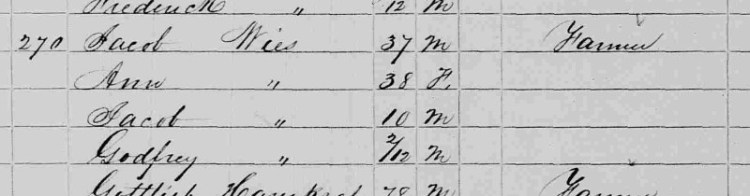 Frederick " 12 M
270 Jacob Wies 37 M Farmer
Ann " 38 F.
Jacob " 10 M
Godfrey " 2/12 M
Gottlieb 78 M Farmer